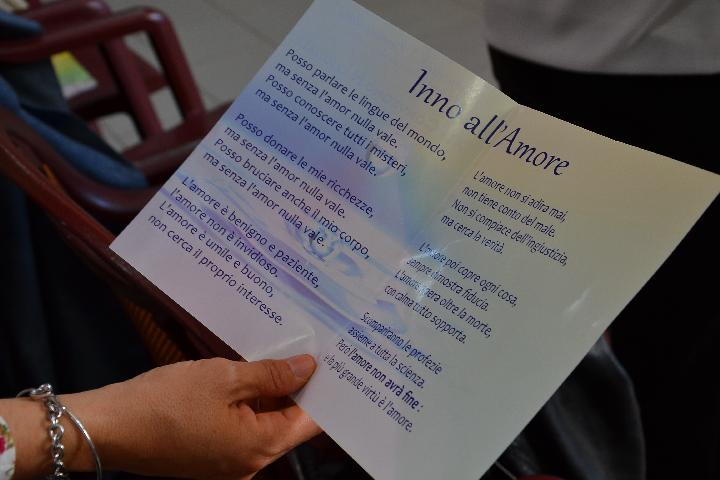 Inno all'Amore
Posso parlare le lingue del mondo,
ma senza l'amor nulla vale.
Posso conoscere tutti i misteri,
ma senza l'amor nulla vale.
Posso donare le mie ricchezze,
ma senza l'amor nulla vale.
Posso bruciare anche il mio corpo,
ma senza l'amor nulla vale.
L'amore è benigno e paziente,
l'amore non è invidioso.
L'amore è umile e buono,
non cerca il proprio interesse.
L'amore non si adira mai,
non tiene conto del male.
Non si compiace dell'ingiustizia,
ma cerca la verità.
L'amore poi capre ogni cosa,
sempre dimostra fiducia.
L'amore spera oltre la morte,
con calma tutto sopporta.
Scompariranno le profezie
assieme a tutta la scienza.
Però l'amore non avrà fine :
e la più grande virtù è l'amore.